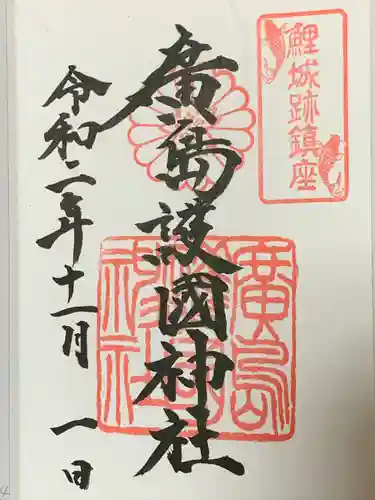 鯉城跡鎮座
廣島護國神社
廣島護國神社
令和二年十一月一日